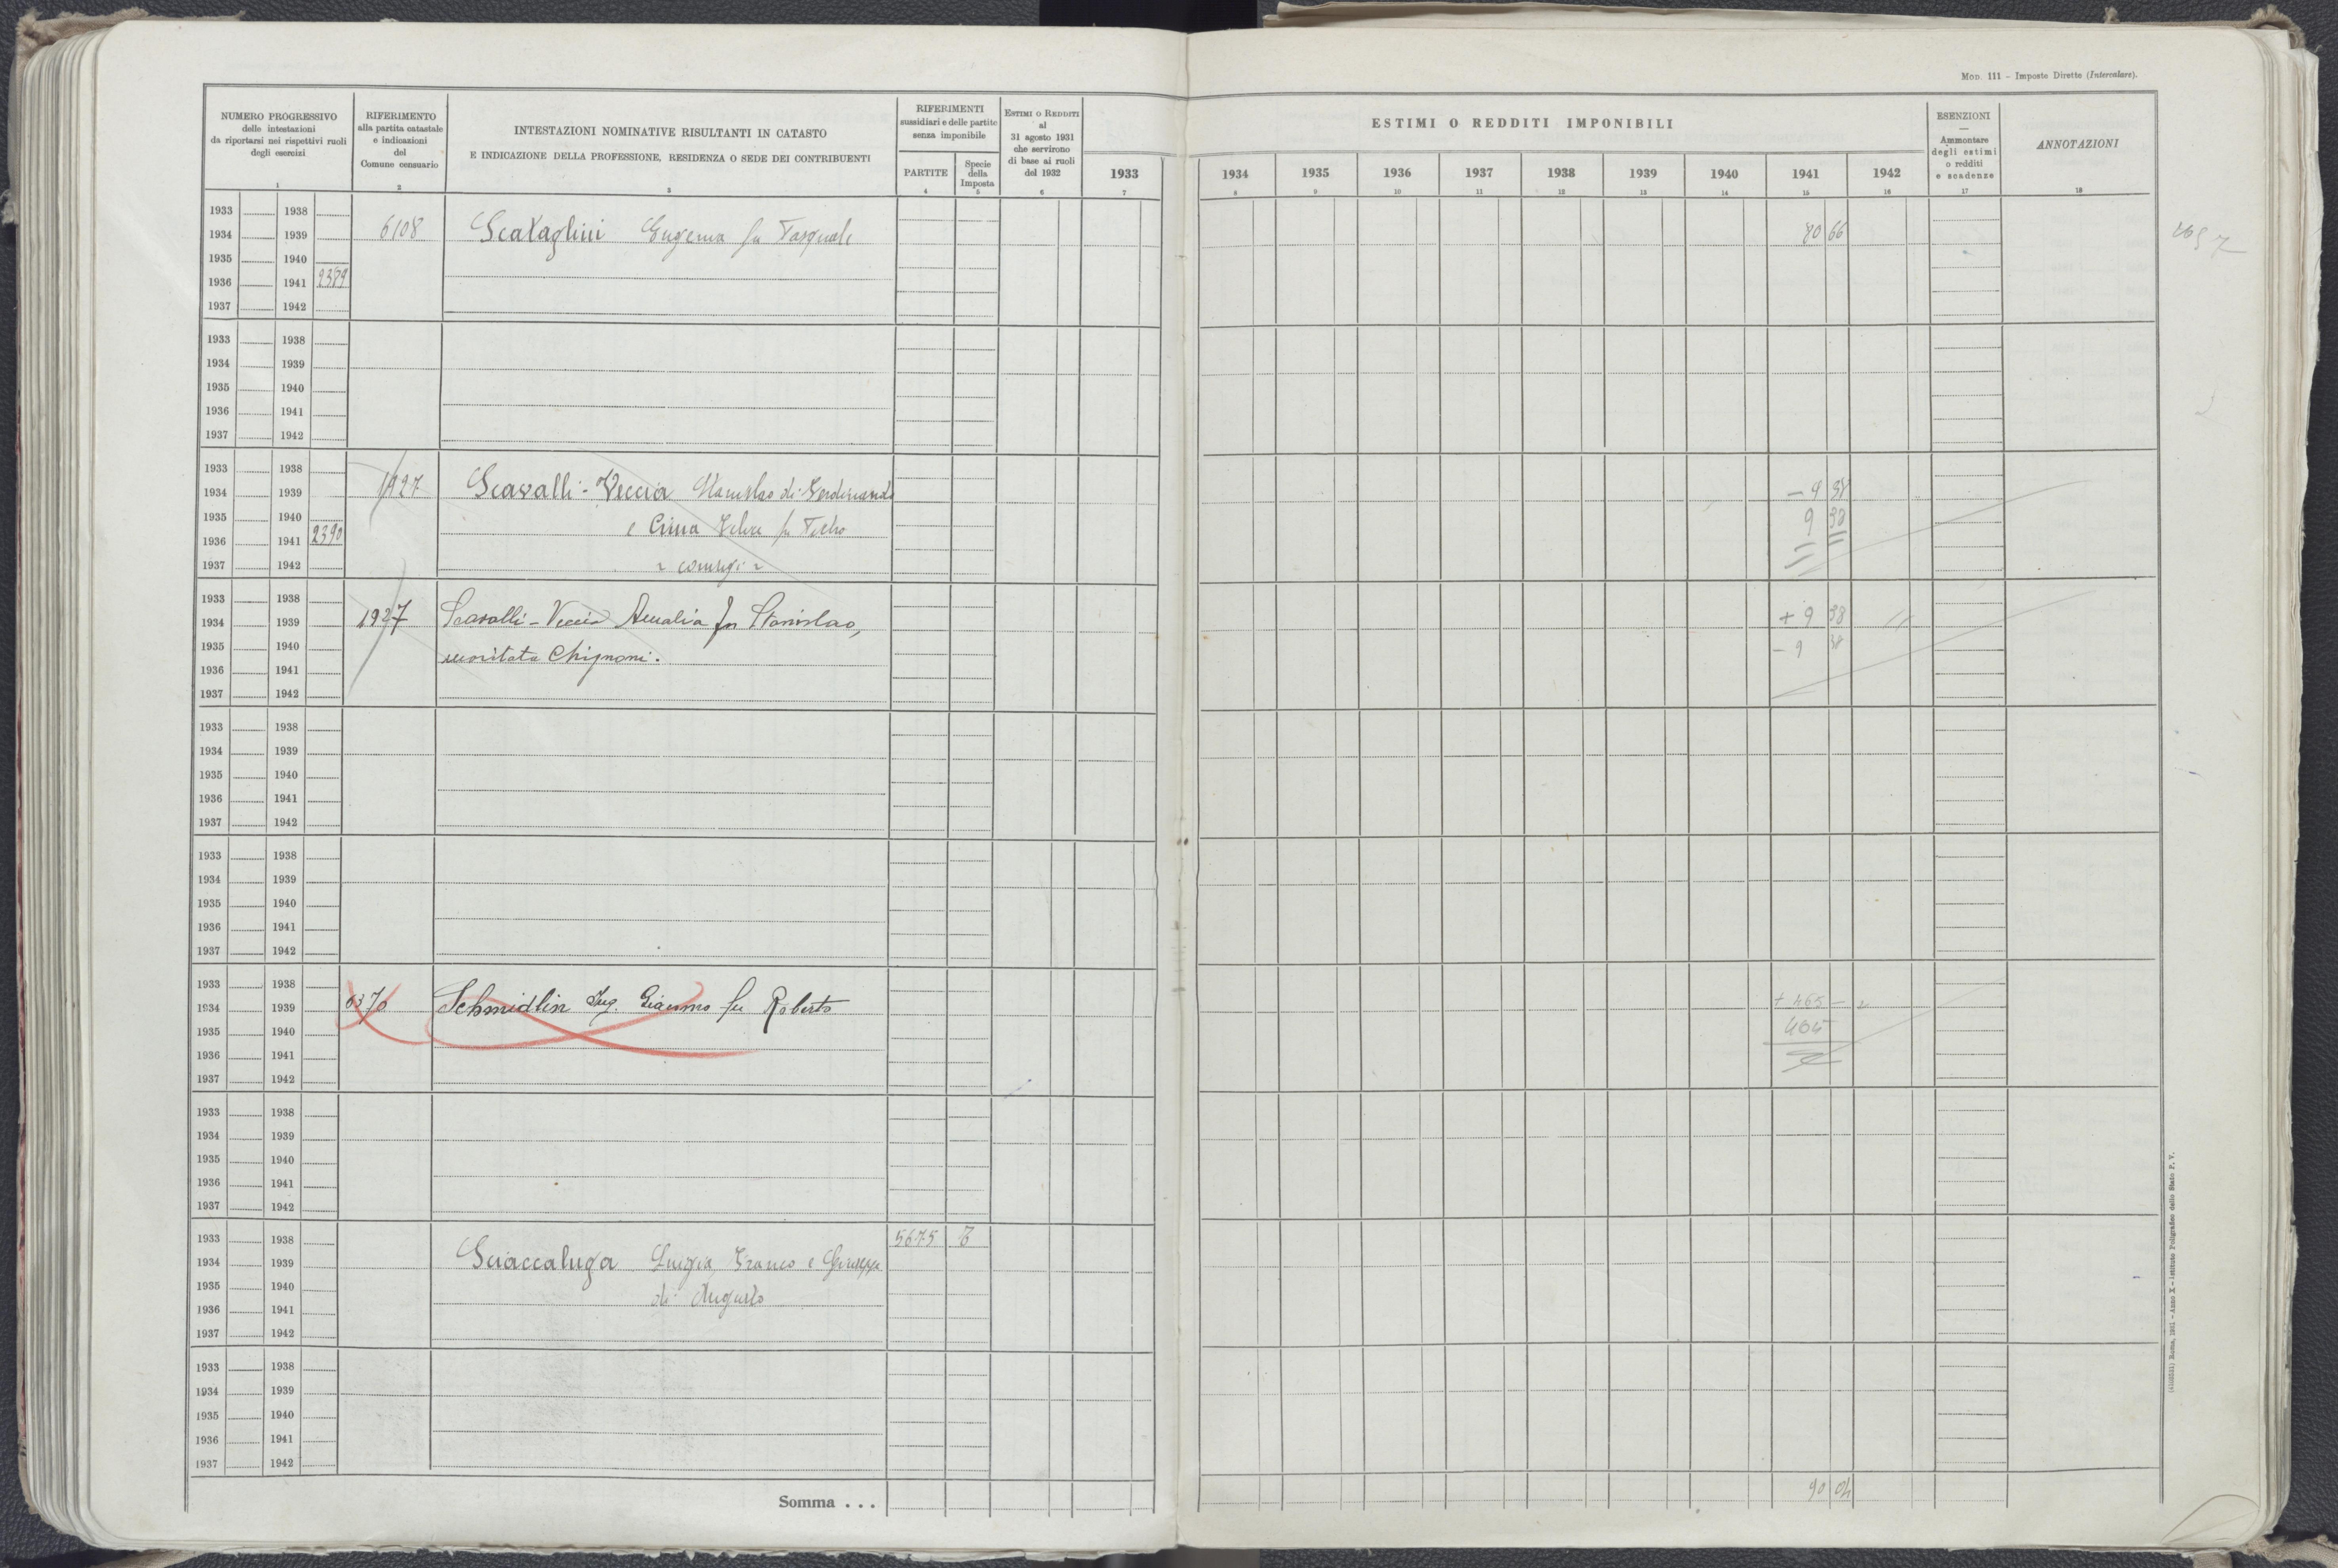 MOD. 111 – Imposte Dirette (Intercalare).
NUMERO PROGRESSIVO
delle intestazioni
da riportarsi nei rispettivi ruoli
degli esercizi
1
RIFERIMENTO
alla partita catastale
e indicazioni
del
Comune censuario
2
INTESTAZIONI NOMINATIVE RISULTANTI IN CATASTO
E INDICAZIONE DELLA PROFESSIONE, RESIDENZA O SEDE DEI CONTRIBUENTI
3
RIFERIMENTI
sussidiari e delle partite
senza imponibile
PARTITE
4
Specie
della
Imposta
5
ESTIMI O REDDITI
al
31 agosto 1931
che servirono
di base ai ruoli
del 1932
6
ESTIMI O REDDITI IMPONIBILI
1933 1934 1935 1936 1937 1938 1939 1940 1941 1942
7 8 9 10 11 12 13 14 15 16
ESENZIONI
—
Ammontare
degli estimi
o redditi
e scadenze
17
ANNOTAZIONI
18
1933 1938
1934 1939 6108 Scataglini Eugenia fu Pasquale 80 66
1935 1940
1936 1941 2389
1937 1942
1933 1938
1934 1939
1935 1940
1936 1941
1937 1942
1933 1938
1934 1939 1927 Scavalli-Veccia Stanislao di Ferdinando – 9 38
1935 1940 e Cima fu Pietro 9 38
1936 1941 2390
1937 1942 coniugi
1933 1938
1934 1939 1927 Scavalli-Veccia Amalia fu Stanislao, + 9 38 "
1935 1940 maritata Chignoni. – 9 38
1936 1941
1937 1942
1933 1938
1934 1939
1935 1940
1936 1941
1937 1942
1933 1938
1934 1939
1935 1940
1936 1941
1937 1942
1933 1938
1934 1939 6376 Schmidlin Ing. Giacomo fu Roberto + 465 –
1935 1940 465
1936 1941
1937 1942
1933 1938
1934 1939
1935 1940
1936 1941
1937 1942
1933 1938 5675
1934 1939 Sciaccaluga Luigia Franco e Giuseppe
1935 1940 di Augusto
1936 1941
1937 1942
1933 1938
1934 1939
1935 1940
1936 1941
1937 1942
Somma . . . 90 04
Roma, 1931 – Anno X – Istituto Poligrafico dello Stato P. V.